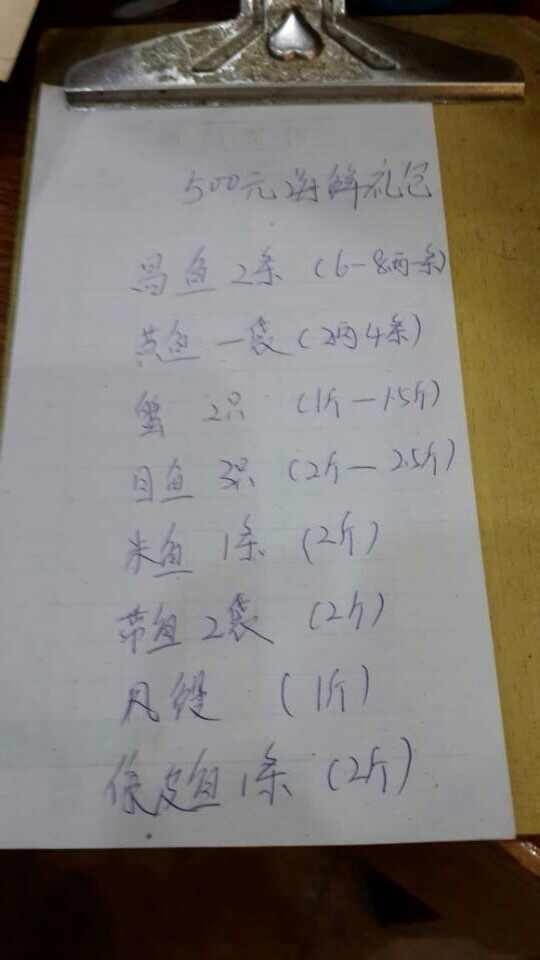 500元海鲜礼包
昌鱼 2条 (6-8两一条)
黄鱼 一袋 (2两4条)
蟹 2只 (1斤-1.5斤)
目鱼 3只 (2斤-2.5斤)
米鱼 1条 (2斤)
带鱼 2袋 (2斤)
风鳗 (1斤)
皮鱼 1条 (2斤)